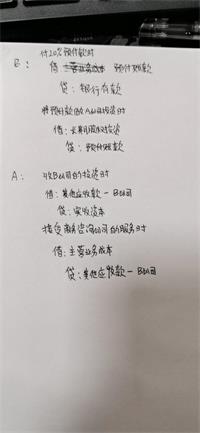 付20%预付款时
B：借：主营业务成本 预付账款
贷：银行存款
将预付款做A公司投资时
借：长期股权投资
贷：预付账款
A：收B公司的投资时
借：其他应收款－B公司
贷：实收资本
接受商务咨询公司的服务时
借：主营业务成本
贷：其他应收款－B公司